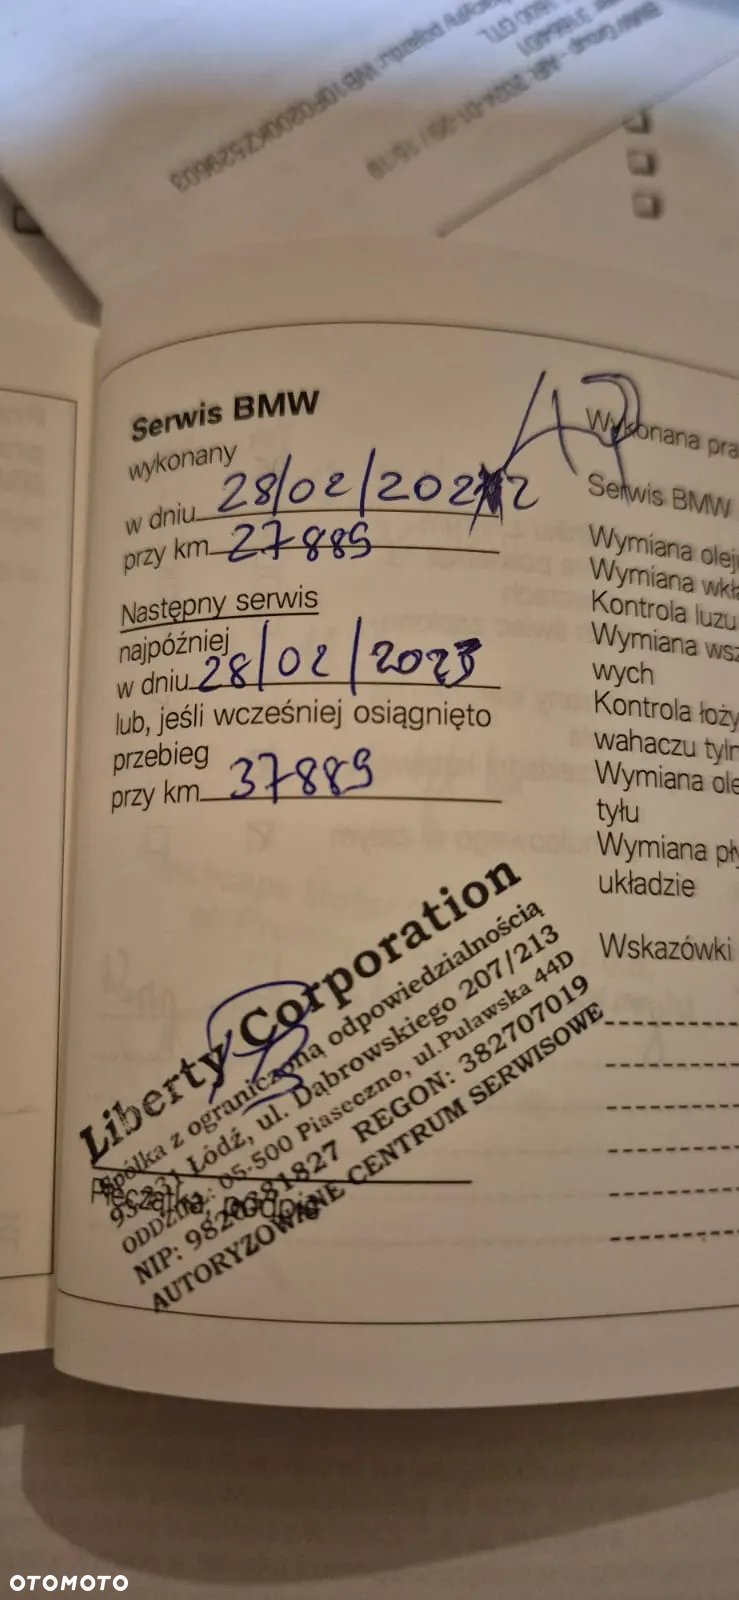 BMW Group - AIR 2024-01-29 / 16:19
Serwis BMW
wykonany
w dniu 28/02/2022
przy km 27889
Następny serwis
najpóźniej
w dniu 28/02/2023
lub, jeśli wcześniej osiągnięto
przebieg
przy km 37889
Liberty Corporation
Spółka z ograniczoną odpowiedzialnością
93-231 Łódź, ul. Dąbrowskiego 207/213
ODDZIAŁ: 05-500 Piaseczno, ul.Puławska 44D
REGON: 382707019
AUTORYZOWANE CENTRUM SERWISOWE
Pieczątka, podpis
Wykonana pra
Serwis BMW
Wymiana olej
Wymiana wkł
Kontrola luzu
Wymiana wsz
wych
Kontrola łoży
wahaczu tyln
Wymiana ole
tyłu
Wymiana pły
układzie
Wskazówki
OTOMOTO